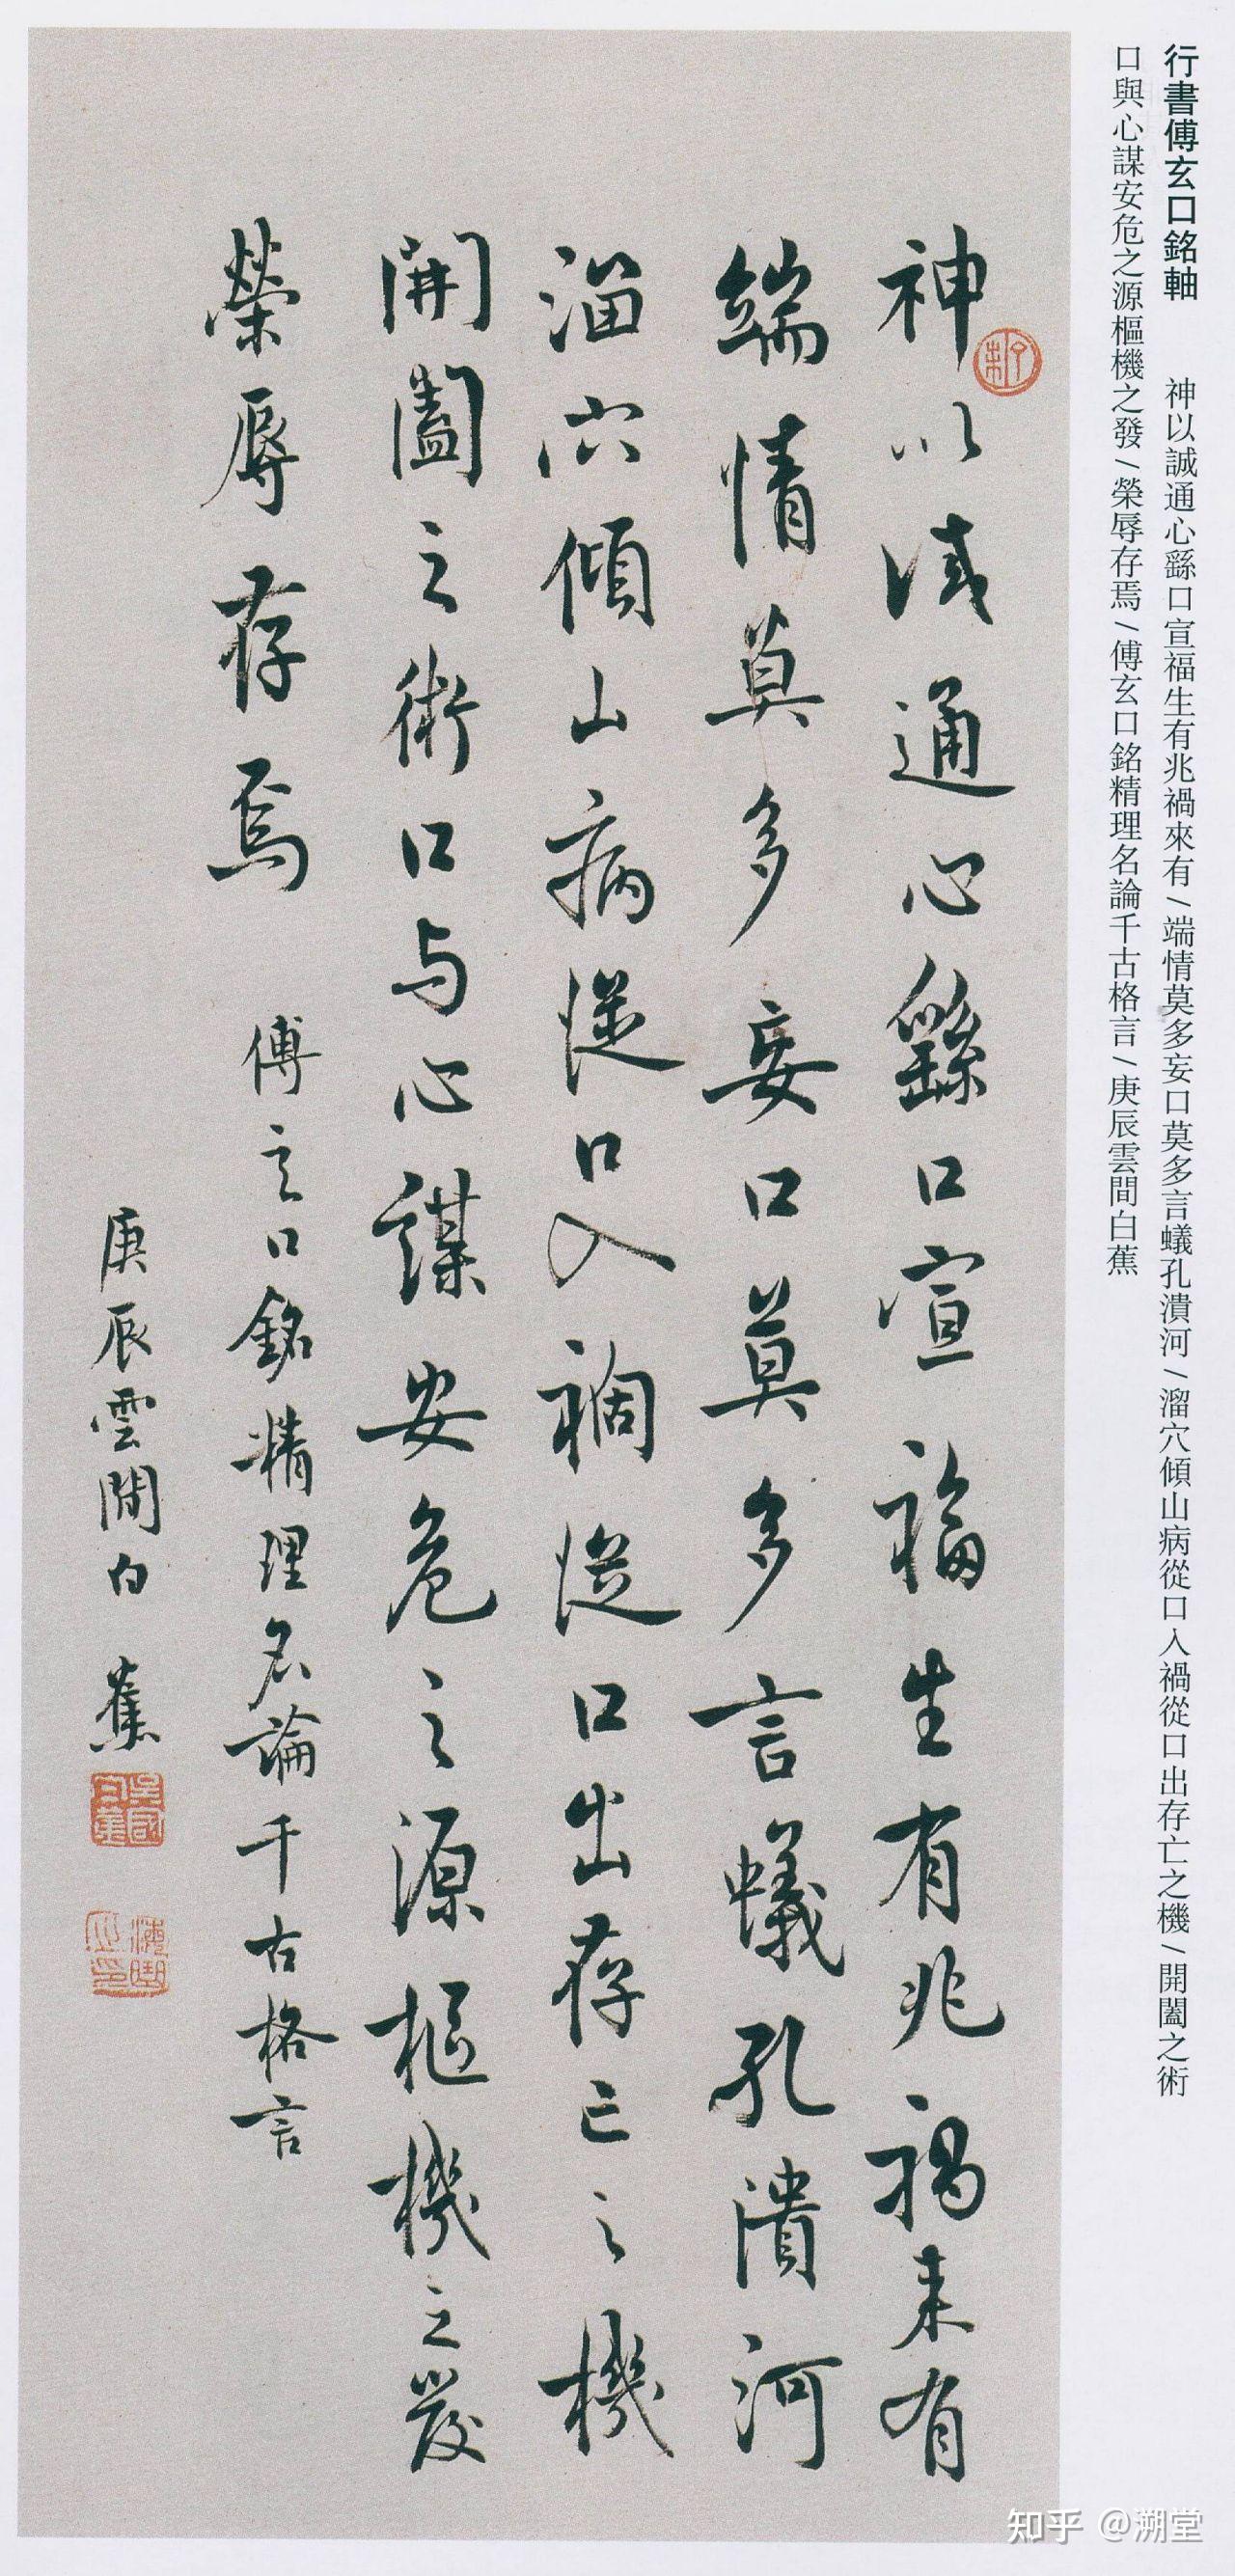 行書傅玄口銘軸 神以誠通心繇口宣福生有兆禍來有/端情莫多妄口莫多言蟻孔潰河/溜穴傾山病從口入禍從口出存亡之機/開闔之術
口與心謀安危之源樞機之發/榮辱存焉/傅玄口銘精理名論千古格言/庚辰雲間白蕉
神以誠通心繇口宣福生有兆禍来有
端情莫多妄口莫多言蟻孔潰河
溜穴傾山病從口入禍從口出存亡之機
開闔之術口与心謀安危之源樞機之發
榮辱存焉 傅玄口銘精理名論千古格言
庚辰雲間白蕉
知乎 @溯堂